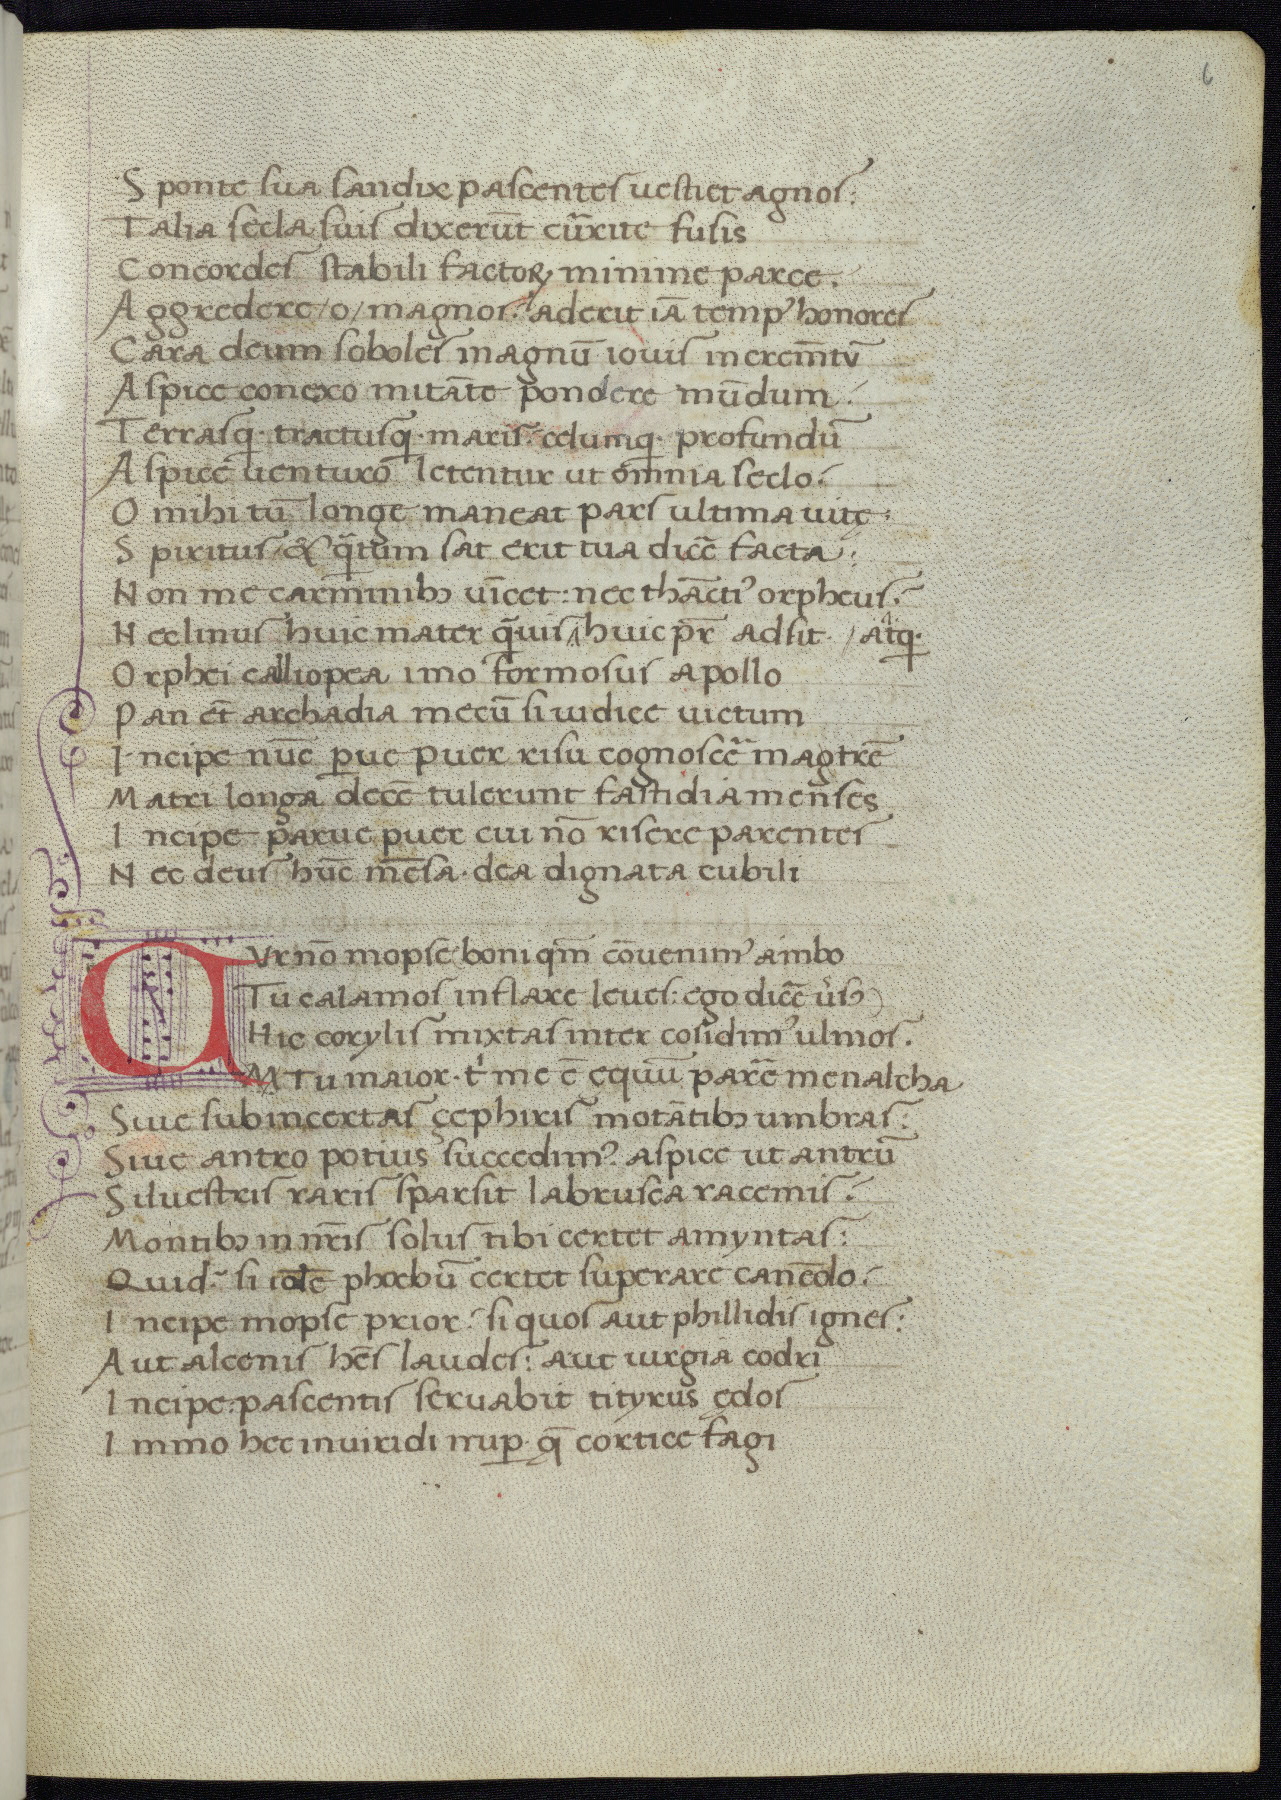 6
S ponte sua sandix pascentes uestiet agnos:
T alia secla suis dixerūt cūrrite fusis
C oncordes stabili factoꝝ minime parce.
A ggredere /o/ magnos: aderit iā tempꝰ honores
C ara deum soboles magnū iouis incremētū
A spice conexo mitāte pondere mūdum:
T errasq· tractusq· maris: celumq· profundū
A spice uenturo letentur ut omnia seclo:
O mihi tū longe maneat pars ultima uitę:
S piritus: & q̄tum sat erit tua dicē facta:
N on me carminibꝫ uīcet: nec thāctiꝰ orpheus:
N ec linus huic mater q̄uis huic pr̄ adsit· /atq·
O rphei calliopea imo formosus apollo
P an et̄ archadia mecū si iudice uictum
I ncipe nūc pue puer risu cognoscē magtrē
M atri longa decē tulerunt fastidia menses
I ncipe parue puer cui nō risere parentes
N ec deus hūc mēsa· dea dignata cubili
C Vr nō mopse boni qm̄ cōuenimꝰ ambo
Tu calamos inflare leues: ego dicē ūsꝫ
Hic corylis mixtas inter cosidimꝰ ulmos.
M Tu maior· t' me ē equū parē menalcha
Siue sub incertas çephiris motātibꝫ umbras:
Siue antro potius succedimꝰ: aspice ut antrū
Siluestris raris sparsit labrusca racemis:
Montibꝫ in nr̄is solus tibi certet amyntas:
Quid: si idē phœbū certet superare canēdo:
I ncipe mopse prior: si quos aut phillidis ignes:
A ut alconis hēs laudes: aut iurgia codri
I ncipe: pascentis seruabit tityrus ędos
I mmo hec in uiridi nup· q̄ cortice fagi